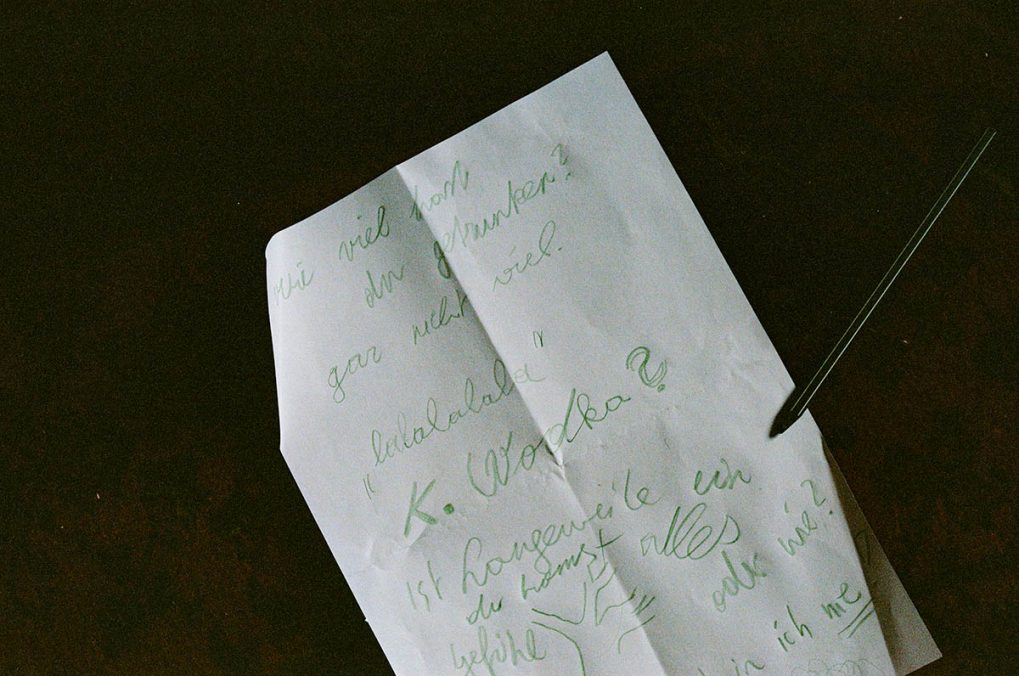 wie viel hast
du getrunken?
gar nicht viel.
"lalalalala"
K. Wodka?
Ist Langeweile ein
du kannst alles
gefühl oder wie?
in ich me